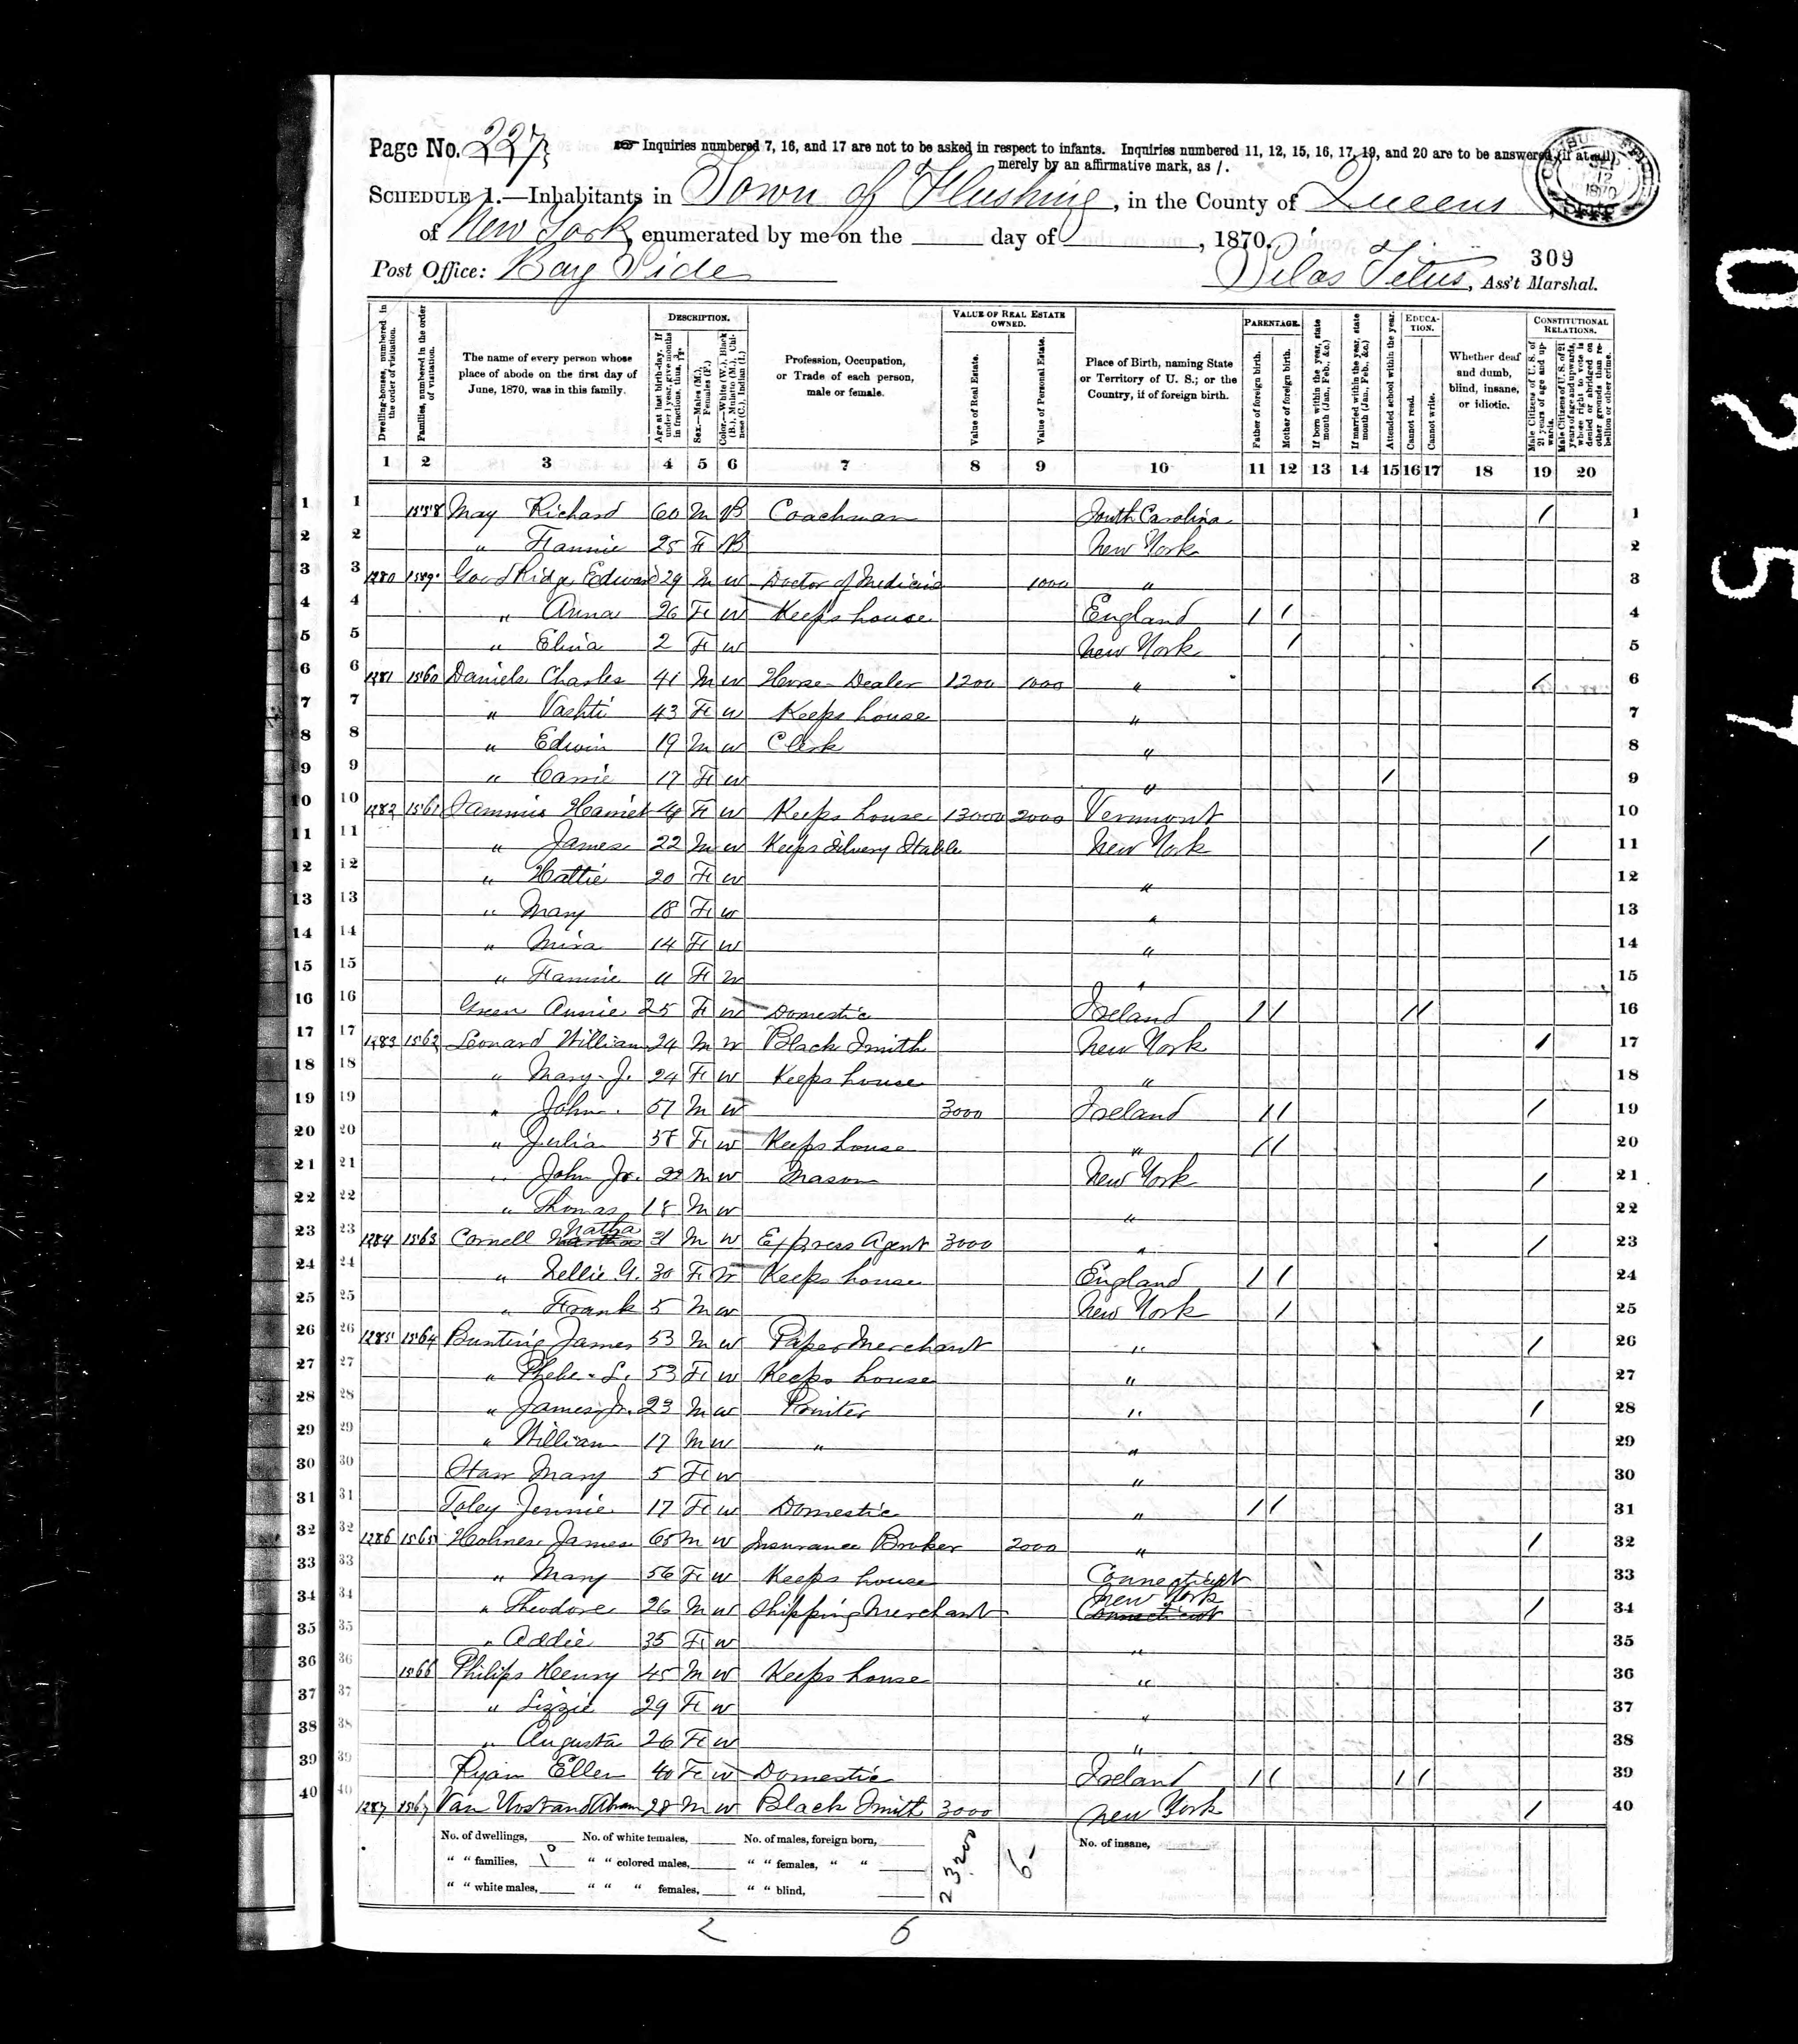 Page No. 227
Inquiries numbered 7, 16, and 17 are not to be asked in respect to infants. Inquiries numbered 11, 12, 15, 16, 17, 19, and 20 are to be answered (if at all)
merely by an affirmative mark, as /.
SCHEDULE 1.—Inhabitants in Town of Flushing, in the County of Queens
of New York, enumerated by me on the ____ day of ____, 1870.
309
Post Office: Bay Side Silas Titus, Ass't Marshal.
Dwelling-houses, numbered in the order of visitation.
Families, numbered in the order of visitation.
The name of every person whose place of abode on the first day of June, 1870, was in this family.
DESCRIPTION.
Age at last birth-day. If under 1 year, give months in fractions, thus, 3/12.
Sex.—Males (M.), Females (F.)
Color.—White (W.), Black (B.), Mulatto (M.), Chinese (C.), Indian (I.)
Profession, Occupation, or Trade of each person, male or female.
VALUE OF REAL ESTATE OWNED.
Value of Real Estate.
Value of Personal Estate.
Place of Birth, naming State or Territory of U. S.; or the Country, if of foreign birth.
PARENTAGE.
Father of foreign birth.
Mother of foreign birth.
If born within the year, state month (Jan., Feb., &c.)
If married within the year, state month (Jan., Feb., &c.)
Attended school within the year.
EDUCATION.
Cannot read.
Cannot write.
Whether deaf and dumb, blind, insane, or idiotic.
CONSTITUTIONAL RELATIONS.
Male Citizens of U. S. of 21 years of age and upwards.
Male Citizens of U. S. of 21 years of age and upwards, whose right to vote is denied or abridged on other grounds than rebellion or other crime.
1 2 3 4 5 6 7 8 9 10 11 12 13 14 15 16 17 18 19 20
1 1558 May Richard 60 M B Coachman South Carolina / 1
2 " Fannie 25 F B New York 2
3 1280 1559 GoodRidge Edward 29 M W Doctor of Medicine 1000 " 3
4 " Anna 26 F W Keeps house England / / 4
5 " 2 F W New York / 5
6 1281 1560 Daniels Charles 41 M W Horse Dealer 1200 1000 " / 6
7 " Vashti 43 F W Keeps house " 7
8 " Edwin 19 M W Clerk " 8
9 " Carrie 17 F W " / 9
10 1282 1561 Sammis Harriet F W Keeps house 13000 2000 Vermont 10
11 " James 22 M W Keeps Livery Stable New York / 11
12 " Hattie 20 F W " 12
13 " Mary 18 F W " 13
14 " Mira 14 F W " 14
15 " Fannie 11 F W " 15
16 Green Annie 25 F W Domestic Ireland / / / / 16
17 1283 1562 Leonard William 24 M W Black Smith New York / 17
18 " Mary J. 24 F W Keeps house " 18
19 " John 57 M W 3000 Ireland / / / 19
20 " Julia F W Keeps house " / / 20
21 " John Jr. 22 M W Mason New York / 21
22 " Thomas 18 M W " 22
23 1284 1563 Cornell Natha 31 M W Express Agent 3000 " / 23
24 " Nellie G. 30 F W Keeps house England / / 24
25 " Frank 5 M W New York / 25
26 1285 1564 Bunting James 53 M W Paper Merchant " / 26
27 " Phebe L. 53 F W Keeps house " 27
28 " James Jr. 23 M W Printer " / 28
29 " William 17 M W " " 29
30 Starr Mary 5 F W " 30
31 Foley Jennie 17 F W Domestic " / / 31
32 1286 1565 Holmes James 65 M W Insurance Broker 2000 " / 32
33 " Mary 56 F W Keeps house Connecticut 33
34 " Theodore 26 M W Shipping Merchant New York Connecticut / 34
35 " Addie 35 F W " 35
36 1566 Philips Henry 45 M W Keeps house " 36
37 " Lizzie 29 F W " 37
38 " Augusta 26 F W " 38
39 Ryan Ellen 40 F W Domestic Ireland / / / / 39
40 1287 1567 Van Nostrand Abram 28 M W Black Smith 3000 New York / 40
No. of dwellings, No. of white females, No. of males, foreign born, No. of insane,
" " families, 10 " " colored males, " " females, " "
" " white males, " " " females, " " blind,
23200
6
2 6